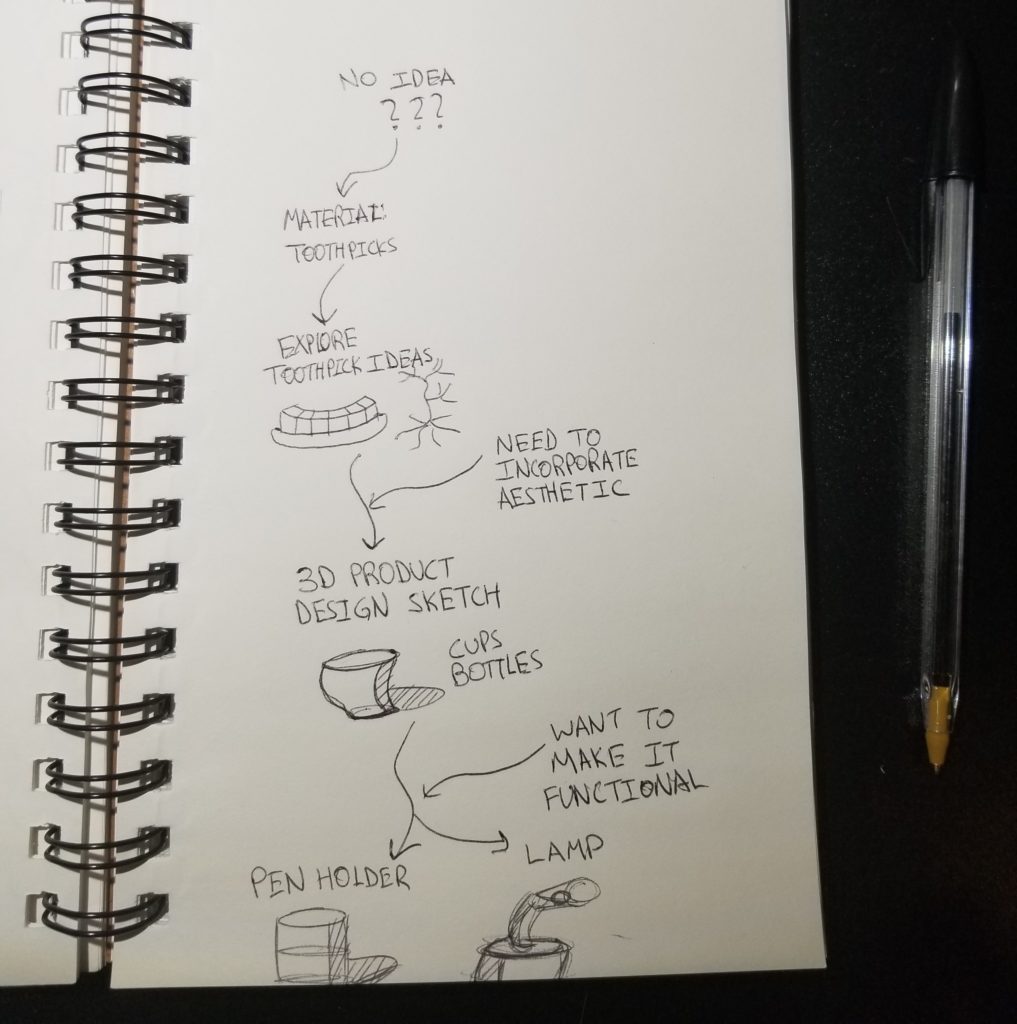 NO IDEA
? ? ?
MATERIAL:
TOOTHPICKS
EXPLORE
TOOTHPICK IDEAS
NEED TO
INCORPORATE
AESTHETIC
3D PRODUCT
DESIGN SKETCH
CUPS
BOTTLES
WANT TO
MAKE IT
FUNCTIONAL
LAMP
PEN HOLDER